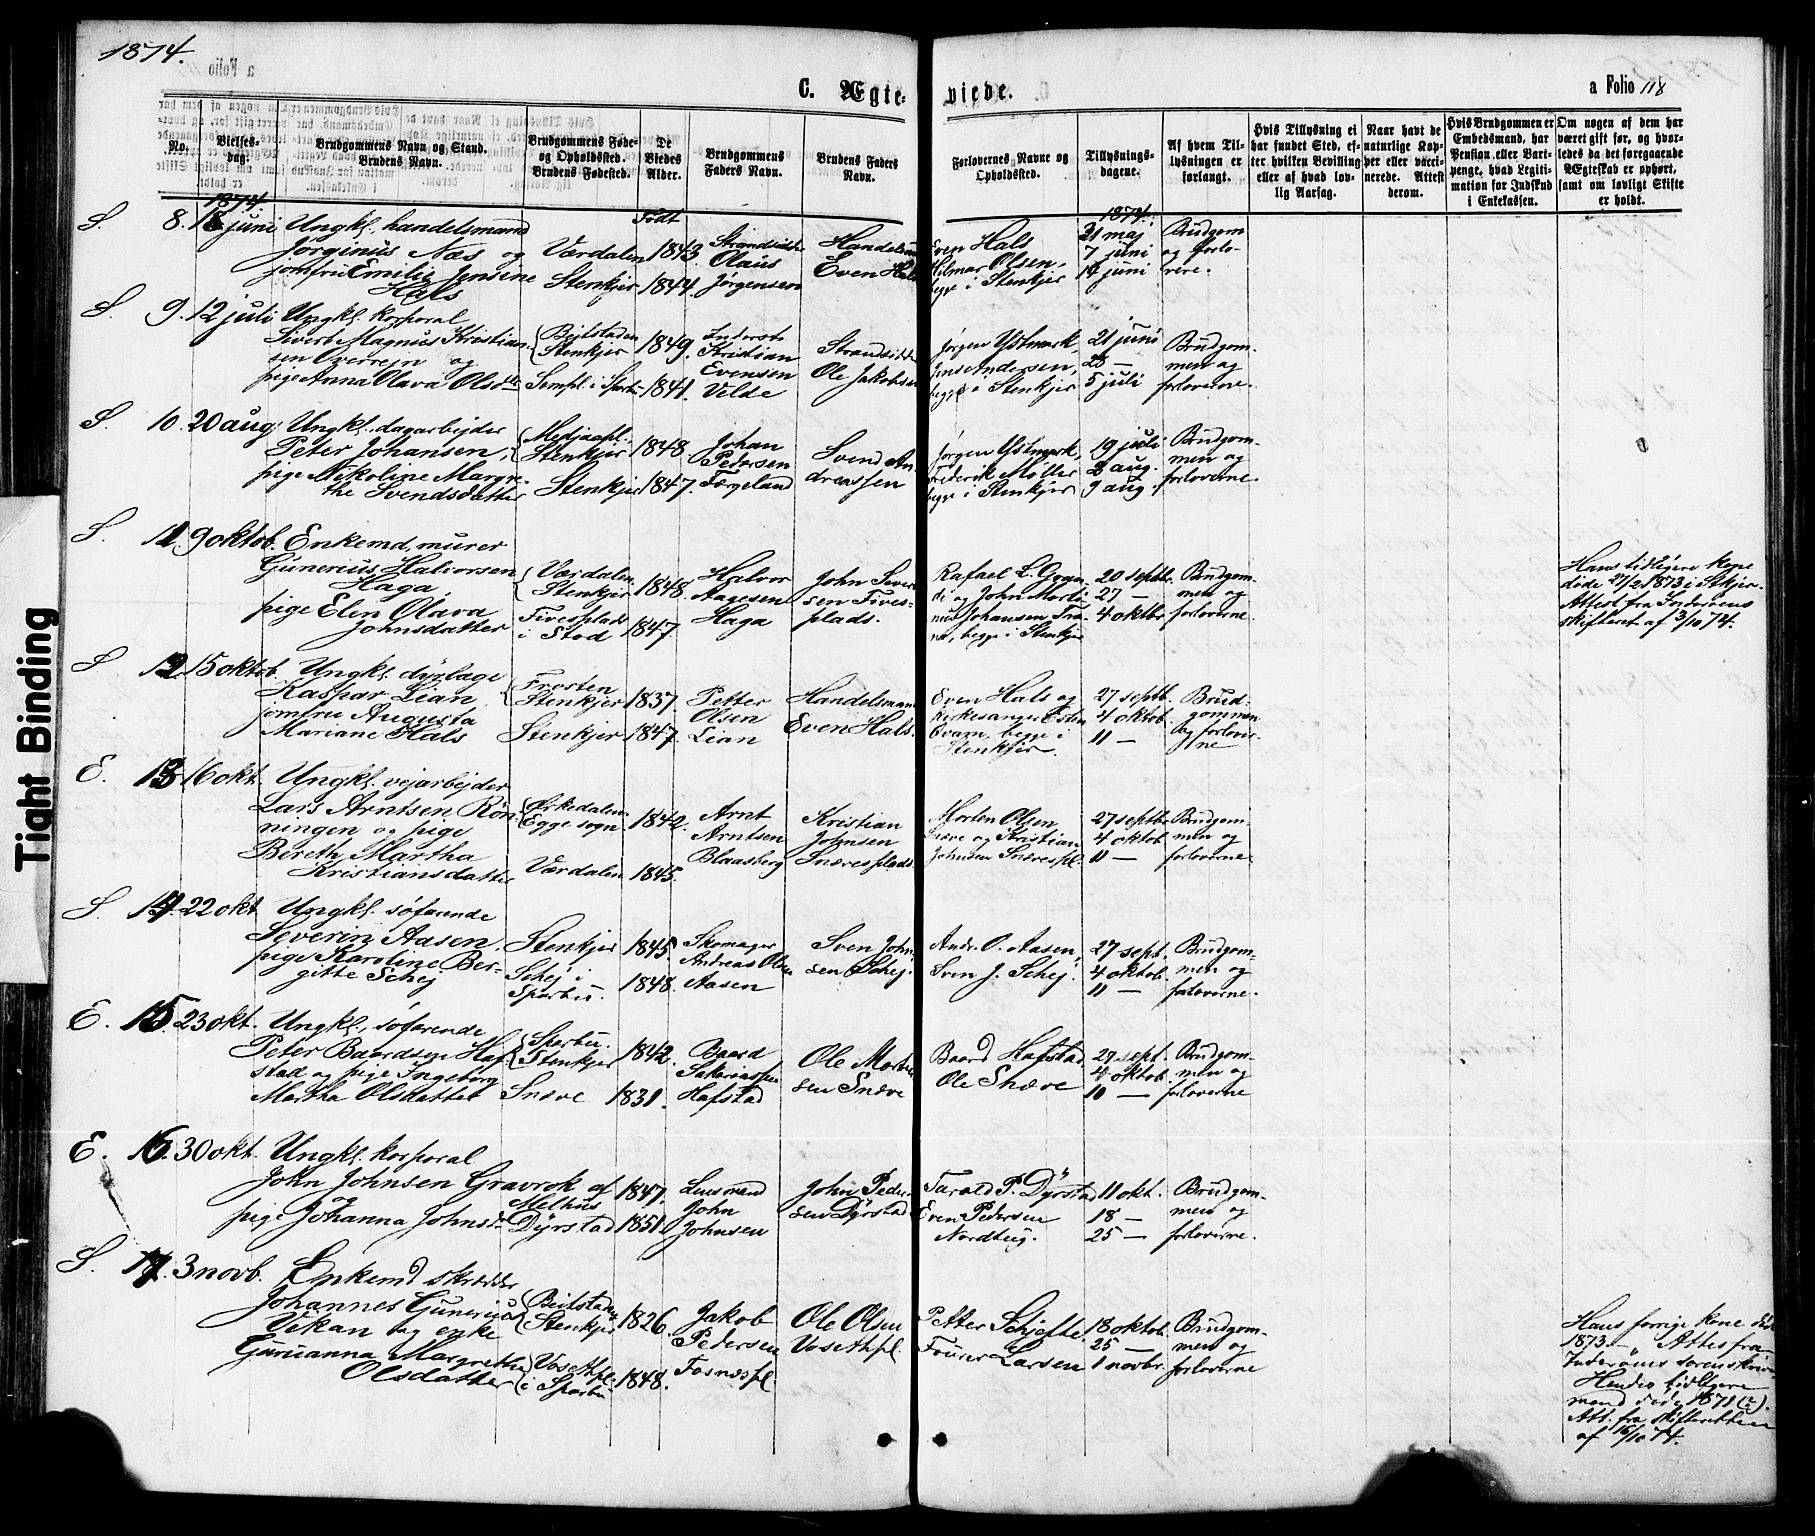 1874.
C. Ægte-
viede.
a Folio 118
No.
Vielses-
dag:
Brudgommens Navn og Stand.
Brudens Navn.
Brudgommens Føde-
og Opholdssted.
Brudens Fødested.
De
Viedes
Alder.
Brudgommens
Faders Navn.
Brudens Faders
Navn.
Forlovernes Navne og
Opholdssted.
Tillysnings-
dagene.
Af hvem Til-
lysningen er
forlangt.
Hvis Tillysning ei
har fundet Sted, ef-
ter hvilken Bevilling
eller af hvad lov-
lig Aarsag.
Naar havt de
naturlige Kop-
per eller vacci-
nerede. Attest
derom.
Hvis Brudgommen er
Embedsmand, har
Pension eller Vart-
penge, hvad Legiti-
mation for Indskud
i Enkekassen.
Om nogen af dem har
været gift før, og hvor-
ledes da det foregaaende
Ægteskab er ophørt,
samt om lovligt Skifte
er holdt.
1874.
Født
1874.
S. 8. 18 juni
Ungkl. handelsmand
Jørginius Næs og
jomfru Emilie Jensine
Hals
Værdalen
Stenkjer
1843.
1844.
Strandsidder
Olaus
Jørgensen
Handelsm
Even Hals
Even Hals
Hilmar Olsen,
begge i Stenkjer
31 maj
7 juni
14 juni
Brudgom
og forlo-
vere.
S. 9. 12 juli
Ungkl. korporal
Sivert Magnus Kristian-
sen Overrejn og
pige Anna Olava Olsdtr
Beitstaden
Stenkjer
Sempl. i Sparb
1849.
1841.
Inderst
Kristian
Evensen
Velde
Strandsidder
Ole Jakobsen
Jørgen Ystmark,
Jens Andersen,
begge i Stenkjer
21 juni
28 —
5 juli
Brudgom-
men og
forloverne.
S. 10. 20 aug
Ungkl. dagarbejder
Peter Johansen,
pige Nikoline Margre-
the Svendsdatter
Medjaapl.
Stenkjer
Stenkjer
1848.
1847.
Johan
Pedersen
Færgeland
Svend An-
dreassen
Jørgen Ystmark,
Frederik Møller
begge i Stenkjer
19 juli
2 aug.
9 aug.
Brudgom-
men og
forloverne.
S. 11. 9 oktob.
Enkemd, murer
Gunerius Halvorsen
Haga,
pige Elen Olava
Johnsdatter
Værdalen
Stenkjer
Tivesplads
i Stod
1848.
1847.
Halvor
Aagesen
Haga
John Siver-
sen Tives-
plads.
Rafael L. Gran-
di og John Marti-
nus Johansen Tra-
nø, begge i Stenkjer
20 septb.
27 —
4 oktbr.
Brudgom-
men og
forloverne.
Hans tidligere kone
døde 27/2 1873 i Stkjer.
Attest fra Inderøens
skifteret af 3/10 74.
S. 12. 15 oktob.
Ungkl. dyrlæge
Kaspar Lian,
jomfru Augusta
Mariane Hals
Frosten
Stenkjer
Stenkjer
1837.
1847.
Petter
Olsen
Lian
Handelsmand
Even Hals.
Even Hals og
kirkesanger Esten
Kvam, begge i
Stenkjer.
27 septb.
4 oktob.
11 —
Brud-
gommen
og forlover-
ne
E. 13. 16 okt.
Ungkl. vejarbejder
Lars Arntsen Røn-
ningen og pige
Bereth Martha
Kristiansdatter
Ørkedalen
Egge sogn.
Værdalen
1842.
1845.
Arnt
Arntsen
Blaasberg
Kristian
Johnsen
Snæresplads
Morten Olsen
Snæve og Kristian
Johnsen Snærespl.
27 septb.
4 oktob.
11 —
Brudgom-
men og
forloverne.
S. 14. 22 okt
Ungkl. søfarende
Severin Aasen.
pige Karoline Ber-
gitte Schej
Stenkjer
Schej i
Sparbu.
1845.
1848.
Skomager
Andreas Olsen
Aasen
Sven John-
sen Schej.
Andr. O. Aasen,
Sven J. Schej.
27 sept.
4 oktob.
11 —
Brudgom-
men og
forloverne.
E. 15. 23 okt.
Ungkl. søfarende
Peter Baardsen Haf-
stad og pige Ingeborg
Martha Olsdatter
Sparbu.
Stenkjer
Snæve
1842.
1831.
Baard
Sakariassen
Hafstad
Ole Morten-
sen Snæve
Baard Hafstad,
Ole Snæve
27 sept.
4 oktob.
10 —
Brudgom-
men og
forloverne
E. 16. 30 okt.
Ungkl. korporal
John Johnsen Gravrok af
og
pige Johanna Johnsd.
Melhus
Dyrstad
1847.
1851.
Lensmand
John
Johnsen
John Peder-
sen Dyrstad
Tarald P. Dyrstad
Even Pedersen
Nordtug.
11 okt.
18 —
25 —
Brudgom-
men og
forloverne.
S. 17. 3 novb.
Enkemd skrædder
Johannes Gunerius
Vekan og enke
Guruanna Margrethe
Olsdatter
Beitstaden
Stenkjer
Vosethpl.
i Sparbu
1826.
1848.
Jakob
Pedersen
Fosnæspl.
Ole Olsen
Vosethpl.
Petter Schjefte,
Fourer Larsen
18 oktob.
25 —
1 novbr.
Brudgom-
men og
forloverne
Hans forrige kone død
1873. — Attest fra
Inderøens sorenskriv
Hendes tidligere
mand døde 1871 (2).
Att. fra skifteretten
af 16/10 74.
Tight Binding